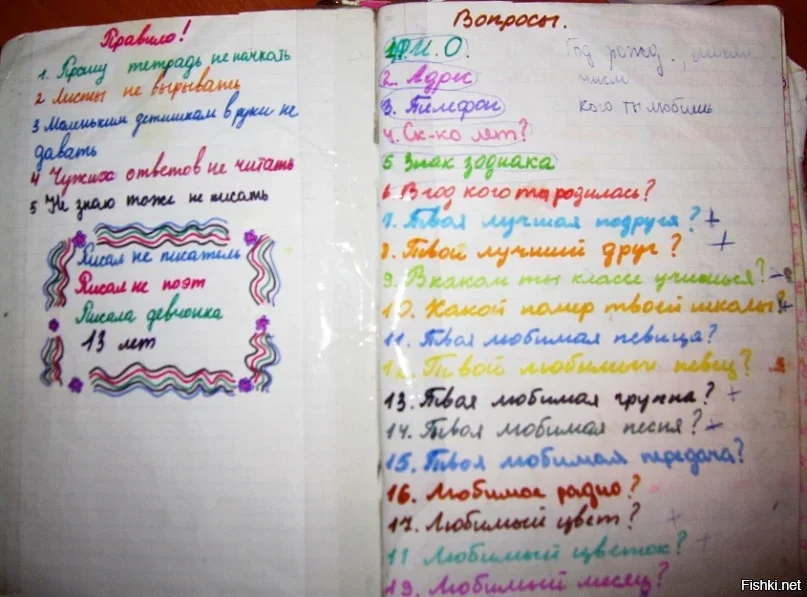 Правило!
1. Прошу тетрадь не пачкать
2 Листы не вырывать
3 Маленьким детишкам в руки не
давать
4 Чужих ответов не читать
5 Не знаю тоже не писать
Писал не писатель
Писал не поэт
Писала девчонка
13 лет
Вопросы.
1. Ф.И.О.
2. Адрес
3. Телефон
4. Ск-ко лет?
5 Знак зодиака
6. В год кого ты родилась?
7. Твоя лучшая подруга? +
8. Твой лучший друг? +
9. В каком ты классе учишься?
10. Какой номер твоей школы?
11. Твоя любимая певица?
12. Твой любимый певец?
13. Твоя любимая группа? +
14. Твоя любимая песня? +
15. Твоя любимая передача?
16. Любимое радио?
17. Любимый цвет? +
11 Любимый цветок? +
19. Любимый месяц?
Год рожд.
число
кого ты любишь
Fishki.net